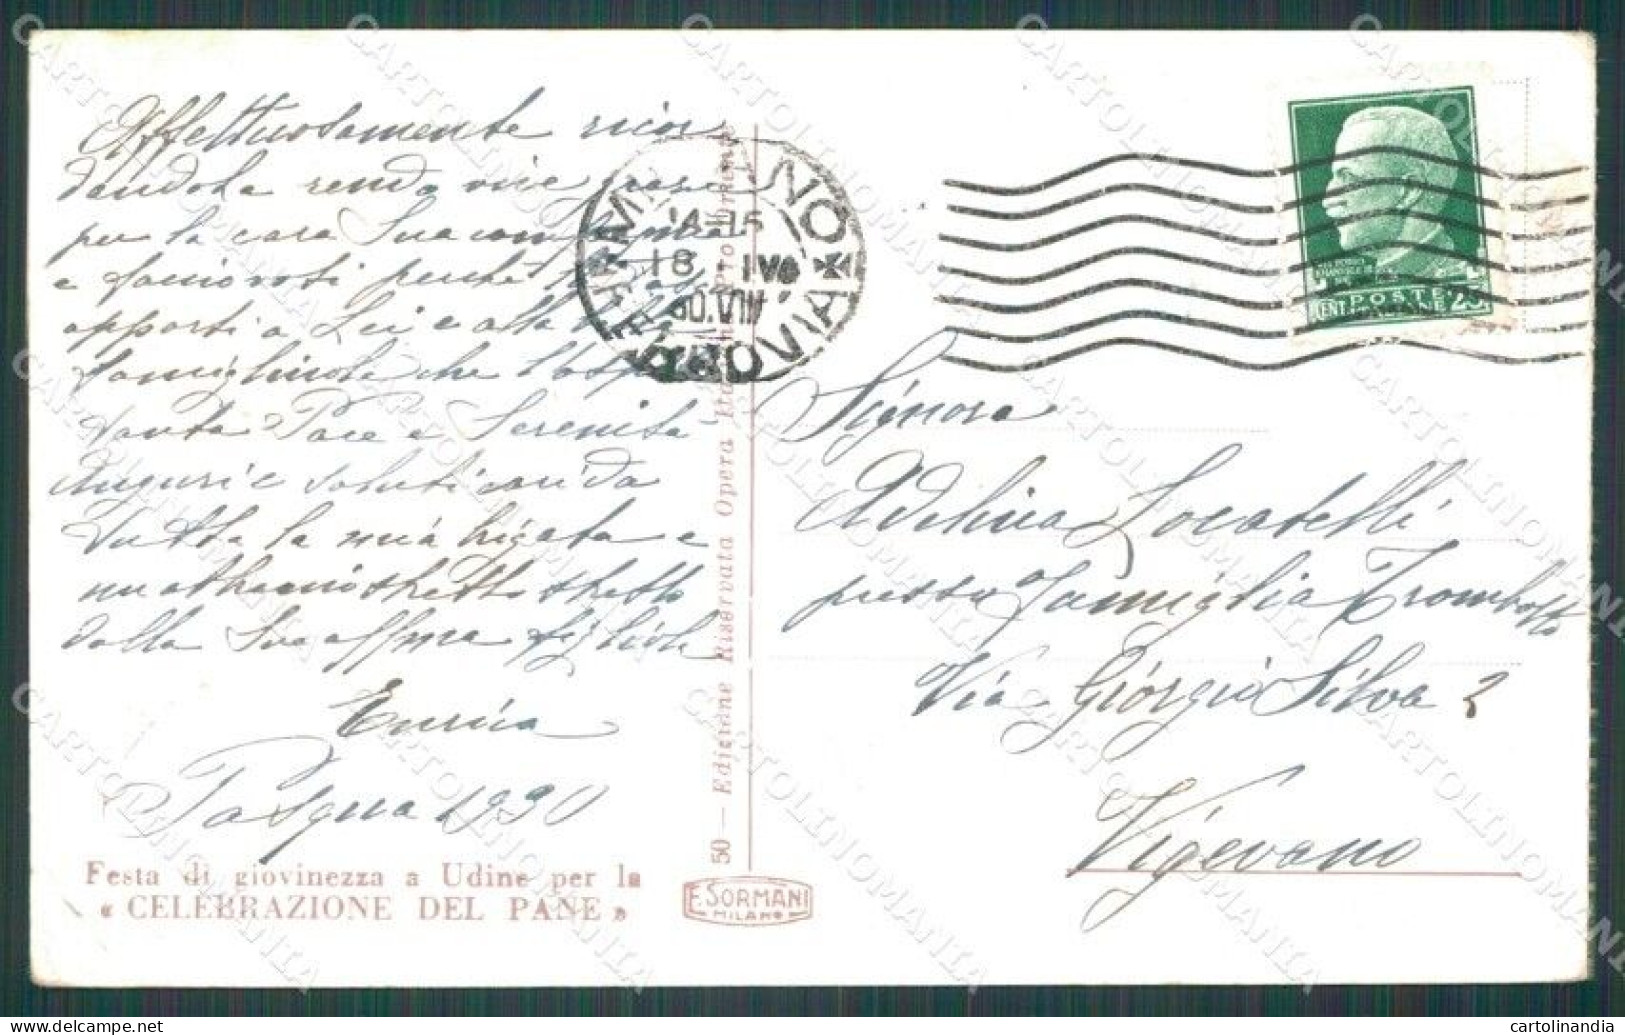 Affettuosamente ricor
dandola rendo vive grazie
per la cara Sua
e fa mio voti perchè
apporti a Lei e alla
famigliuola che l'ospita
tanta Pace e Serenità
Auguri e saluti cari da
tutta la mia brigata e
un abbraccio stretto stretto
dalla Sua affma figliola
Enrica
Pasqua 1930
Festa di giovinezza a Udine per la
« CELEBRAZIONE DEL PANE »
50 — Edizione Riservata Opera
E. SORMANI
MILANO
MILANO
FERROVIA
14-15
18 IV
30.VIII
POSTE
CENT. 25
Signora
Adelina Locatelli
presso Famiglia Trombotto
Via Giorgio Silva 2
Vigevano
CARTOLINOMANIA
cartolinandia